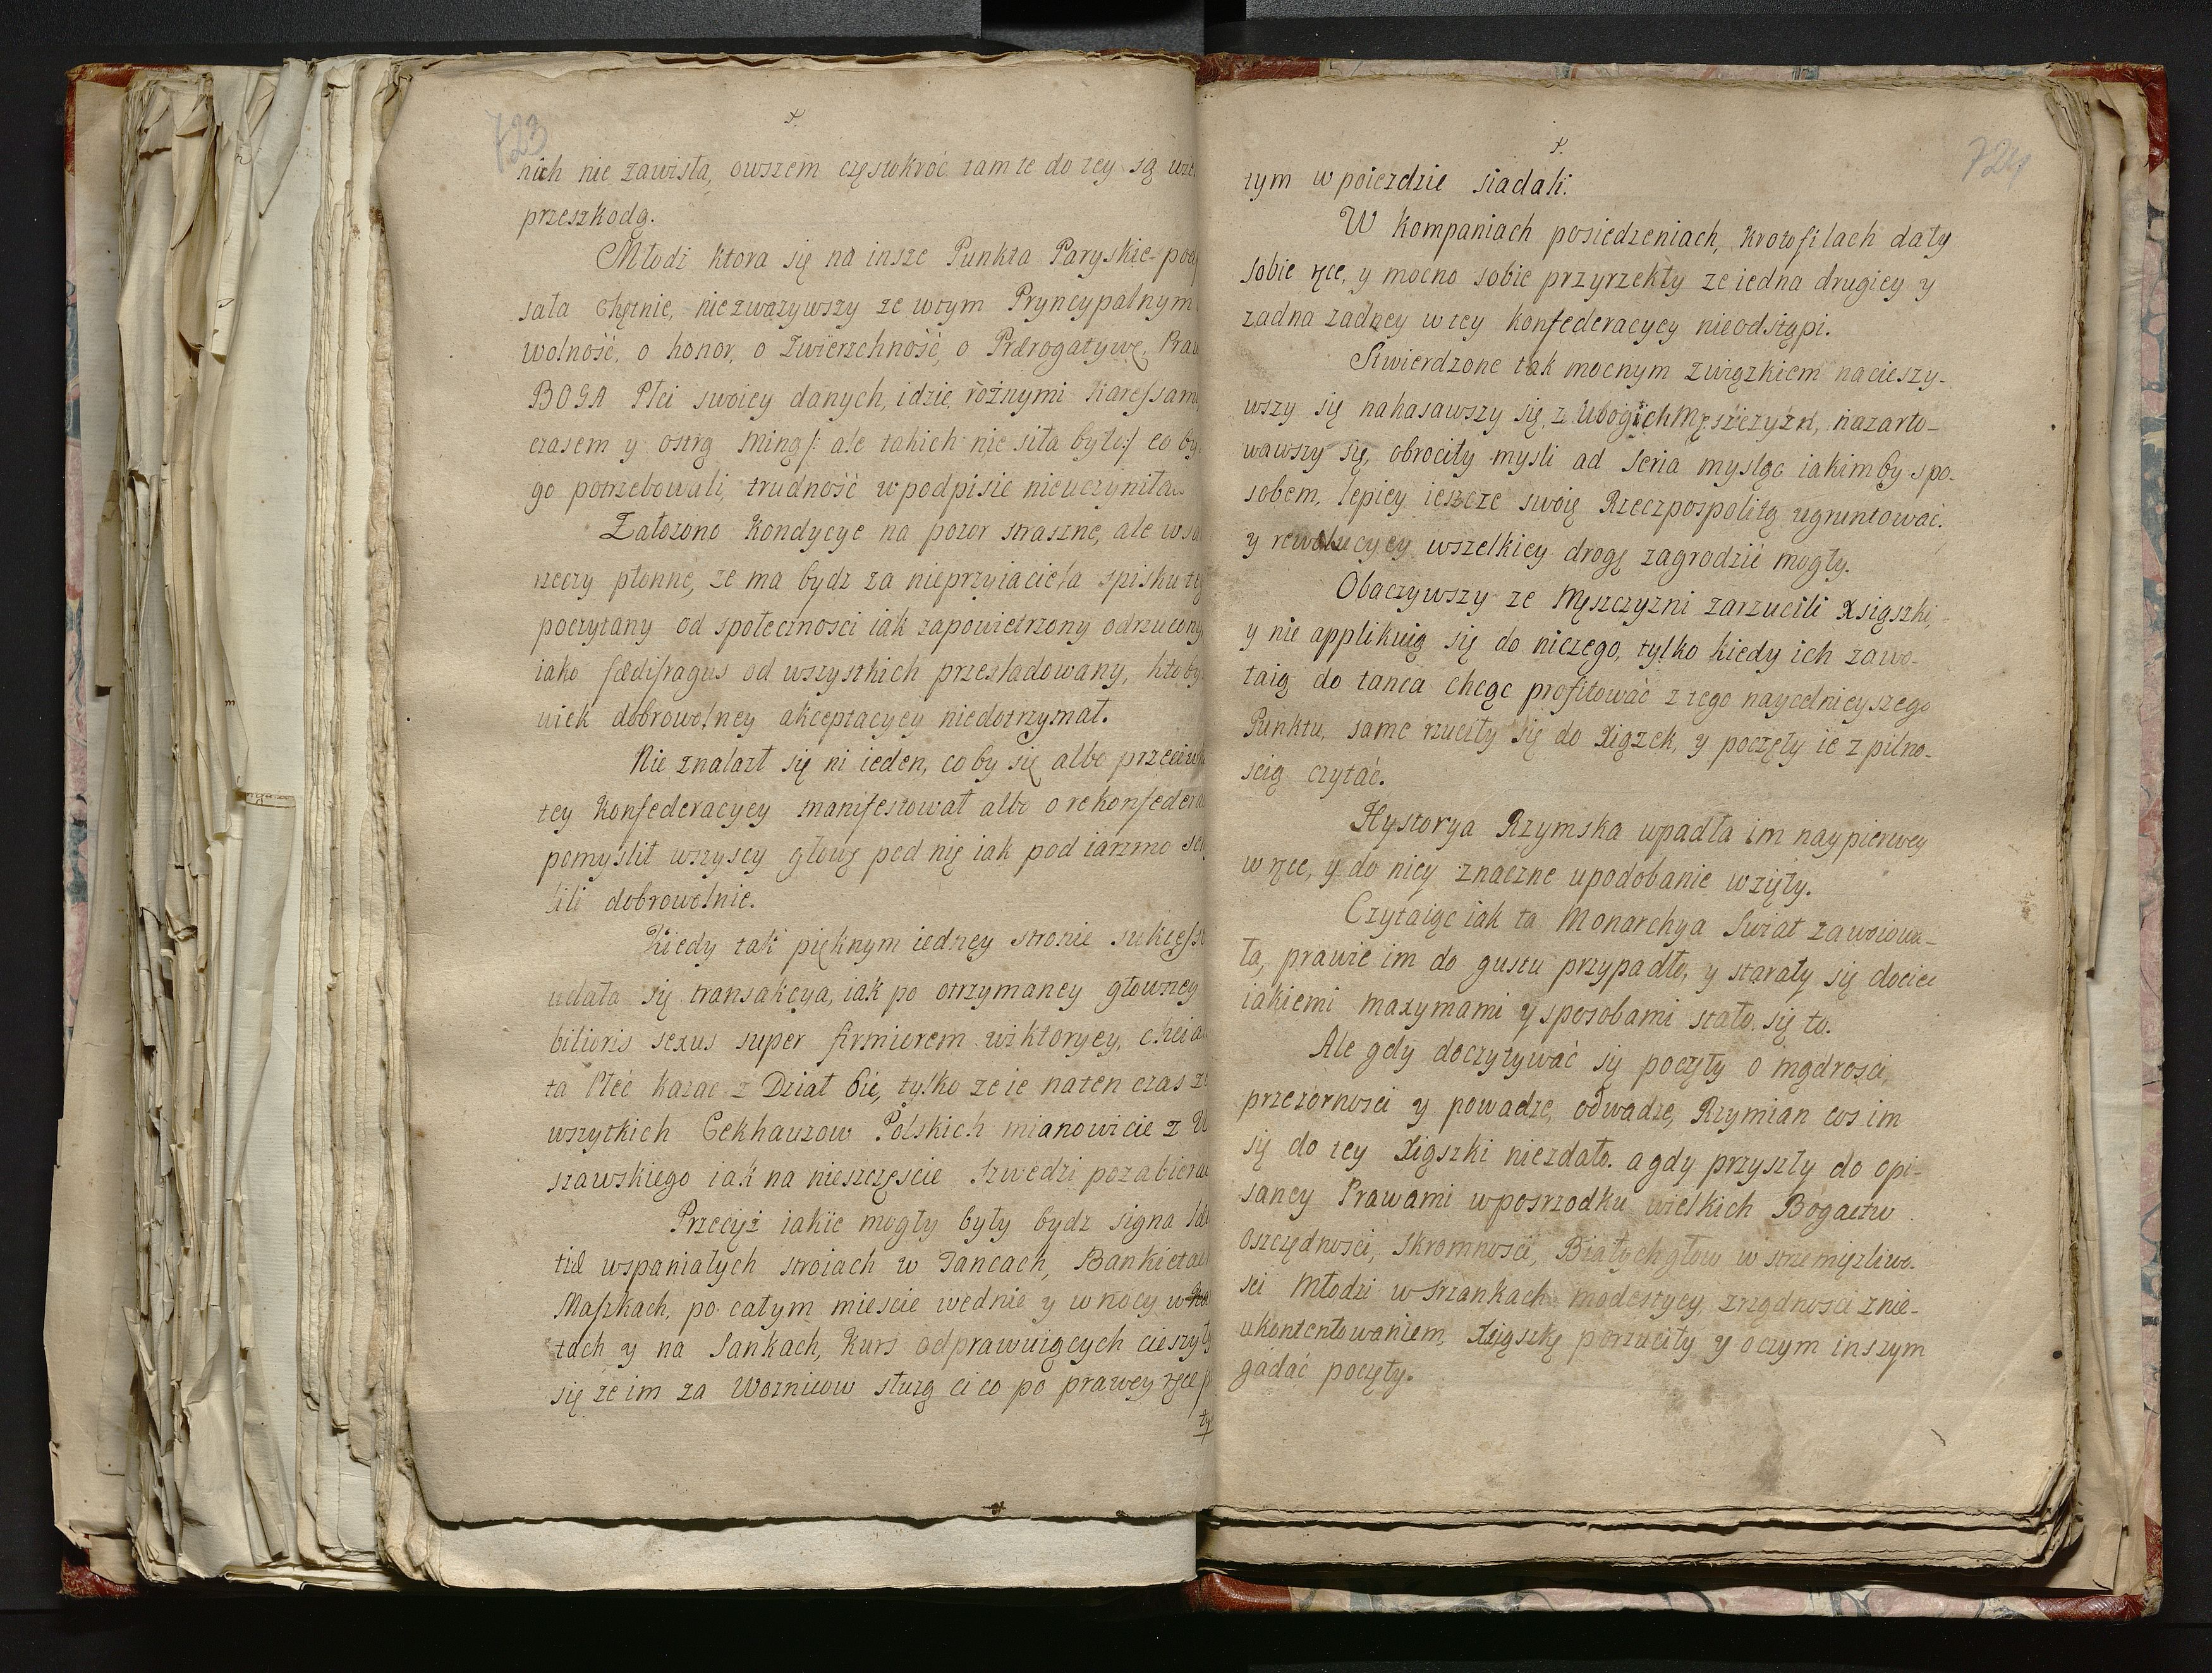 723
nich nie zawisła, owszem częstokroć tam te do tey są
przeszkodą.
Młodź ktora się na insze Punkta Paryskie
sała chętnie, niezwazywszy ze wtym Pryncypalnym
wolność, o honor, o Zwierzchność, o Prærogatywę,
BOGA Płci swoiey danych, idzie, rożnymi
czasem y ostrą miną /: ale takich nie siła było :/ co
go potrzebowali, trudność w podpisie nieuczyniła
Założono Kondycye na pozor straszne, ale w
rzeczy płonne, ze ma bydz za nieprzyiaciela spisku
poczytany od społecznosci iak zapowietrzony odrzucony
iako fædifragus od wszystkich przesładowany,
wiek dobrowolney akceptacyey niedotrzymał.
Nie znalazł się ni ieden, coby się albo
tey Konfederacyey manifestował albo o
pomyslił wszyscy głowę pod nię iak pod iarzmo
lili dobrowolnie.
Kiedy tak pięknym iedney stronie
udała się transakcya, iak po otrzymaney głowney
bilioris sexus super firmiorem wiktoryey,
ta Płeć kazac z Dział bić, tylko ze ie naten czas
wszytkich Cekhauzow Polskich mianowicie z
szawskiego iak na nieszczęscie Szwedzi
Przeciż iakie mogły były bydz signa
tiæ wspaniałych stroiach w Tancach,
Maszkach, po całym miescie wednie y w nocy
tach y na Sankach, Kurs odprawuiących
się ze im za Woznicow służą ci co po prawey ręce
ty
724
tym w poiezdzie siadali.
W kompaniach posiedzeniach, krotofilach dały
sobie ręce, y mocno sobie przyrzekły ze iedna drugiey y
zadna zadney w tey konfederacyey nieodstąpi.
Stwierdzone tak mocnym związkiem nacieszy-
wszy się nahasawszy się, z Ubogich Męszczyzn, nazarto-
wawszy się, obrociły mysli ad seria mysląc iakimby spo-
sobem, lepiey ieszcze swoię Rzeczpospolitą ugruntować.
y rewolucyey wszelkiey drogę zagrodzić mogły.
Obaczywszy ze Męszczyzni zarzucili Xsiąszki,
y nie applikuią się do niczego, tylko kiedy ich zawo-
łaią do tanca chcąc profitować z tego naycelnieyszego
Punktu, same rzuciły się do Xiązek, y poczęły ie z pilno-
scią czytać.
Hystorya Rzymska upadła im naypierwey
w ręce, y do niey znaczne upodobanie wzięły.
Czytaiąc iak ta Monarchya Swiat zawoiowa-
ła, prawie im do gustu przypadło, y starały się dociec
iakiemi maxymami y sposobami stało się to.
Ale gdy doczytywać się poczęły o mądrosci,
przezornosci y powadze, odwadze, Rzymian cos im
się do tey Xiąszki niezdało. a gdy przyszły do opi-
saney Prawami wposrzodku wielkich Bogactw
oszczędnosci, skromnosci, Białychgłow wstrzemięzliwo-
sci Młodzi w Szrankach modestyey, rządnosci z nie-
ukontentowaniem, Xsiąszkę porzuciły y o czym inszym
gadać poczęły.